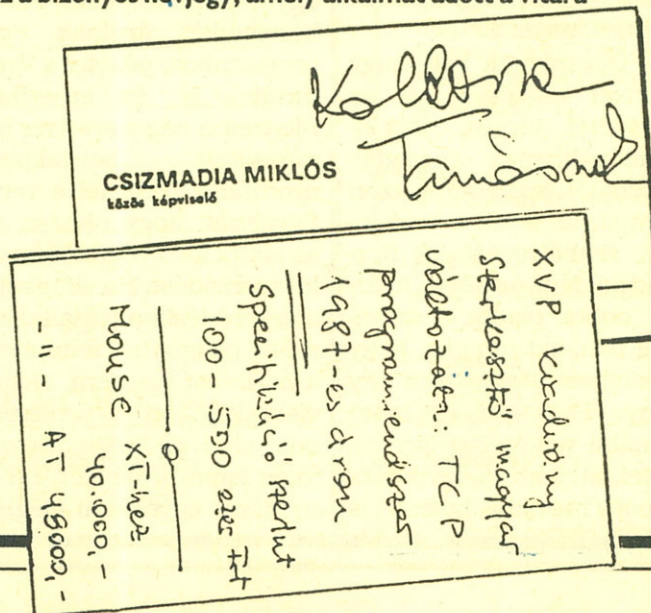 az a bizonyos névjegy, amely alkalmat adott a vitára
Tamásnak
CSIZMADIA MIKLÓS
közös képviselő
XVP kiadvány
szerkesztő magyar
változata: TCP
programrendszer
1987-es áron
Specifikáció szerint
100 - 500 ezer Ft
Mouse XT-hez
40.000,-
-11- AT 48000,-